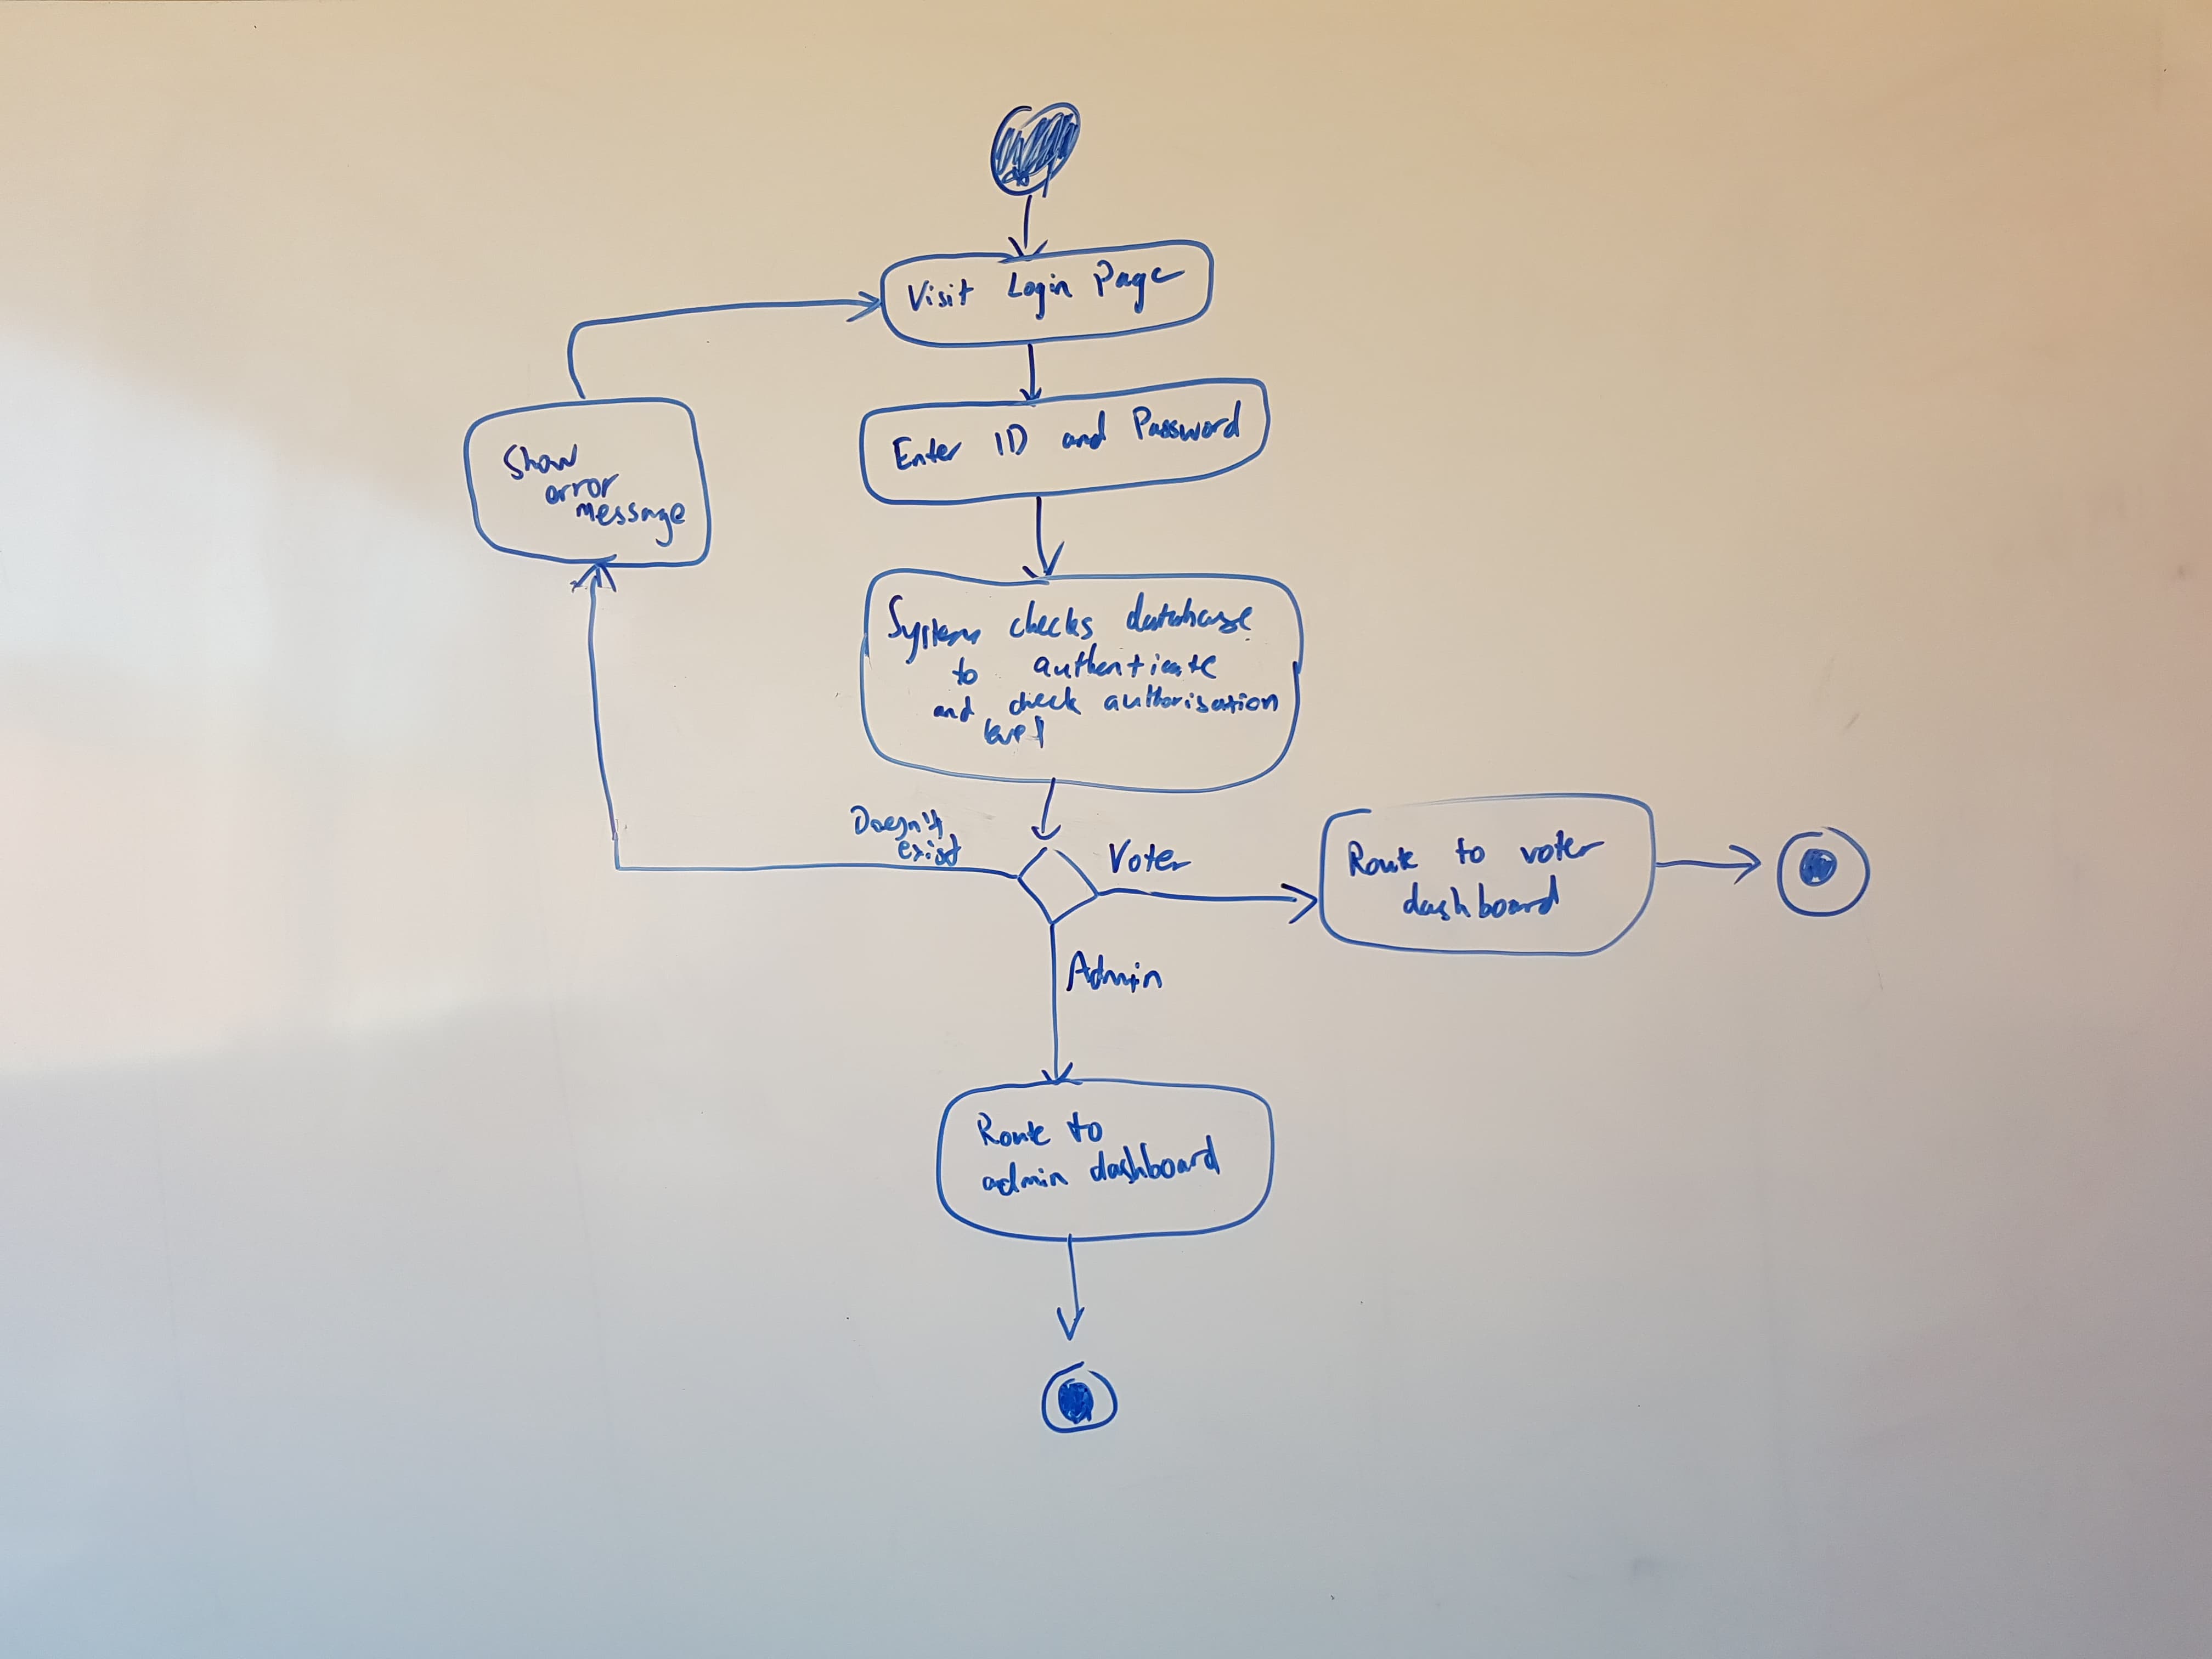 Visit Login Page
Enter ID and Password
Show
error
message
System checks database
to authenticate
and check authorisation
level
Doesn't
exist
Voter
Route to voter
dashboard
Admin
Route to
admin dashboard